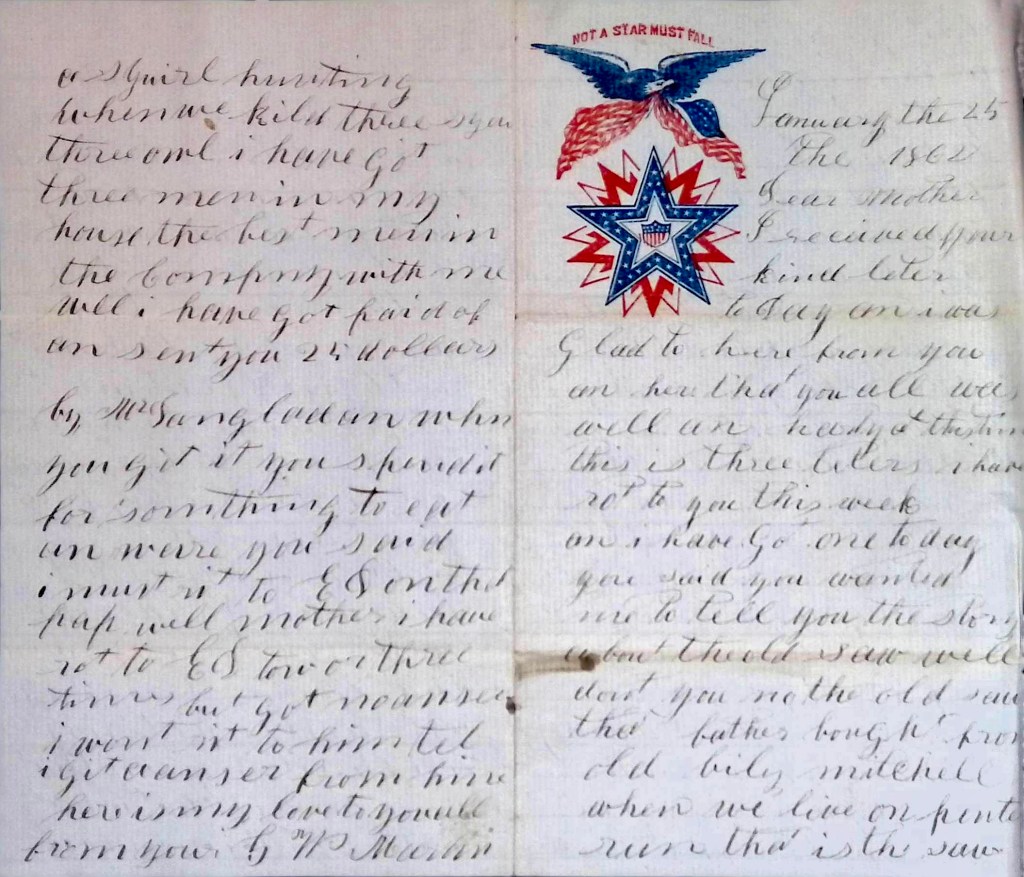 NOT A STAR MUST FALL
January the 25
the 1862
Dear Mother
I received your
kind leter
to day an i was
Glad to here from you
an here that you all was
well an
this is three leters i have
rot to you this week
an i have Got one to day
you said you wanted
me to tell you the story
about the old saw well
dont you no the old saw
that father bought from
old bily mitchell
when we live on
run that is th saw
a Sguirl hunting
when we kild three
three owl i have got
three men in my
house the best men in
the Compny with me
well i have got paid of
an sent you 25 dollars
by Mr an when
you git it you spend it
for somthing to eat
an ware you said
i must rit to ES
pap well mother i have
rot to ES tow or three
times but got no anser
i wont rit to him tel
i git anser from him
here is my love to you all
from your G W Martin